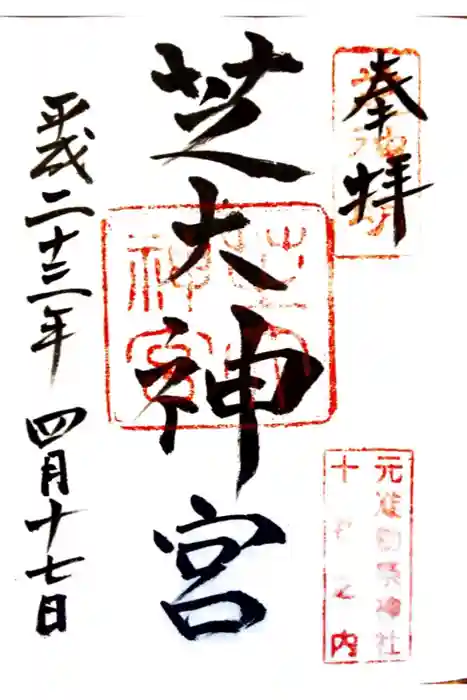 奉拝
元准勅祭神社
十社之内
芝大神宮
芝大神宮
平成二十三年 四月十七日